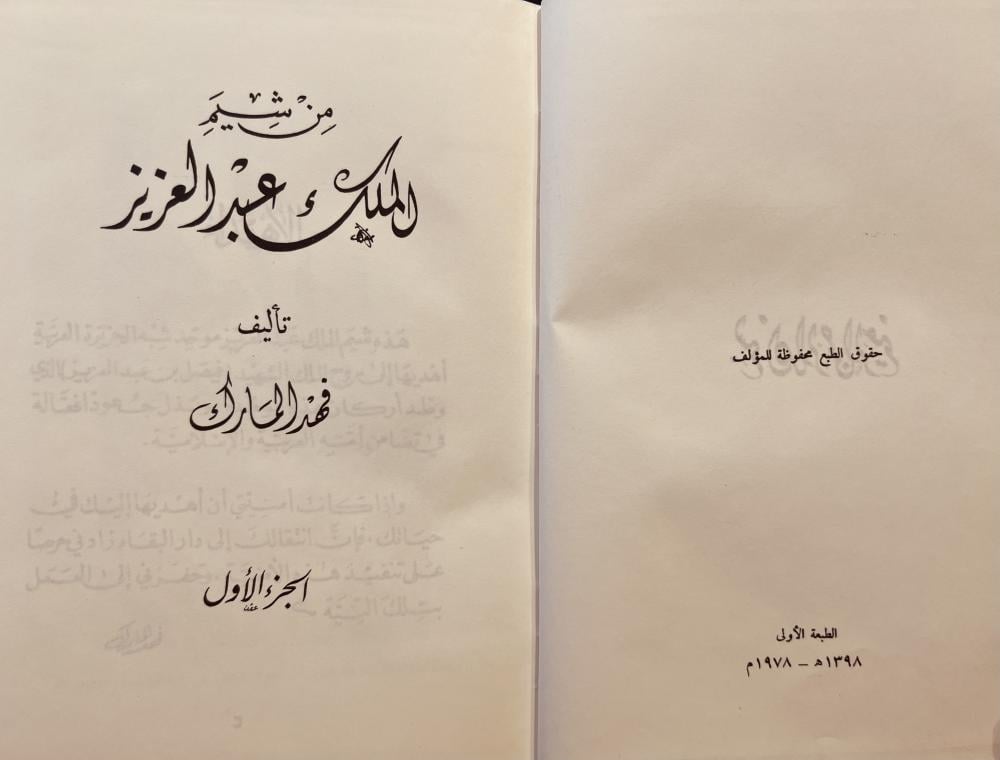 حقوق الطبع محفوظة للمؤلف
الطبعة الأولى
١٣٩٨ه – ١٩٧٨م
مِنْ شِيَمِ
الملك عبد العزيز
تأليف
فهد المارك
الجزء الأول